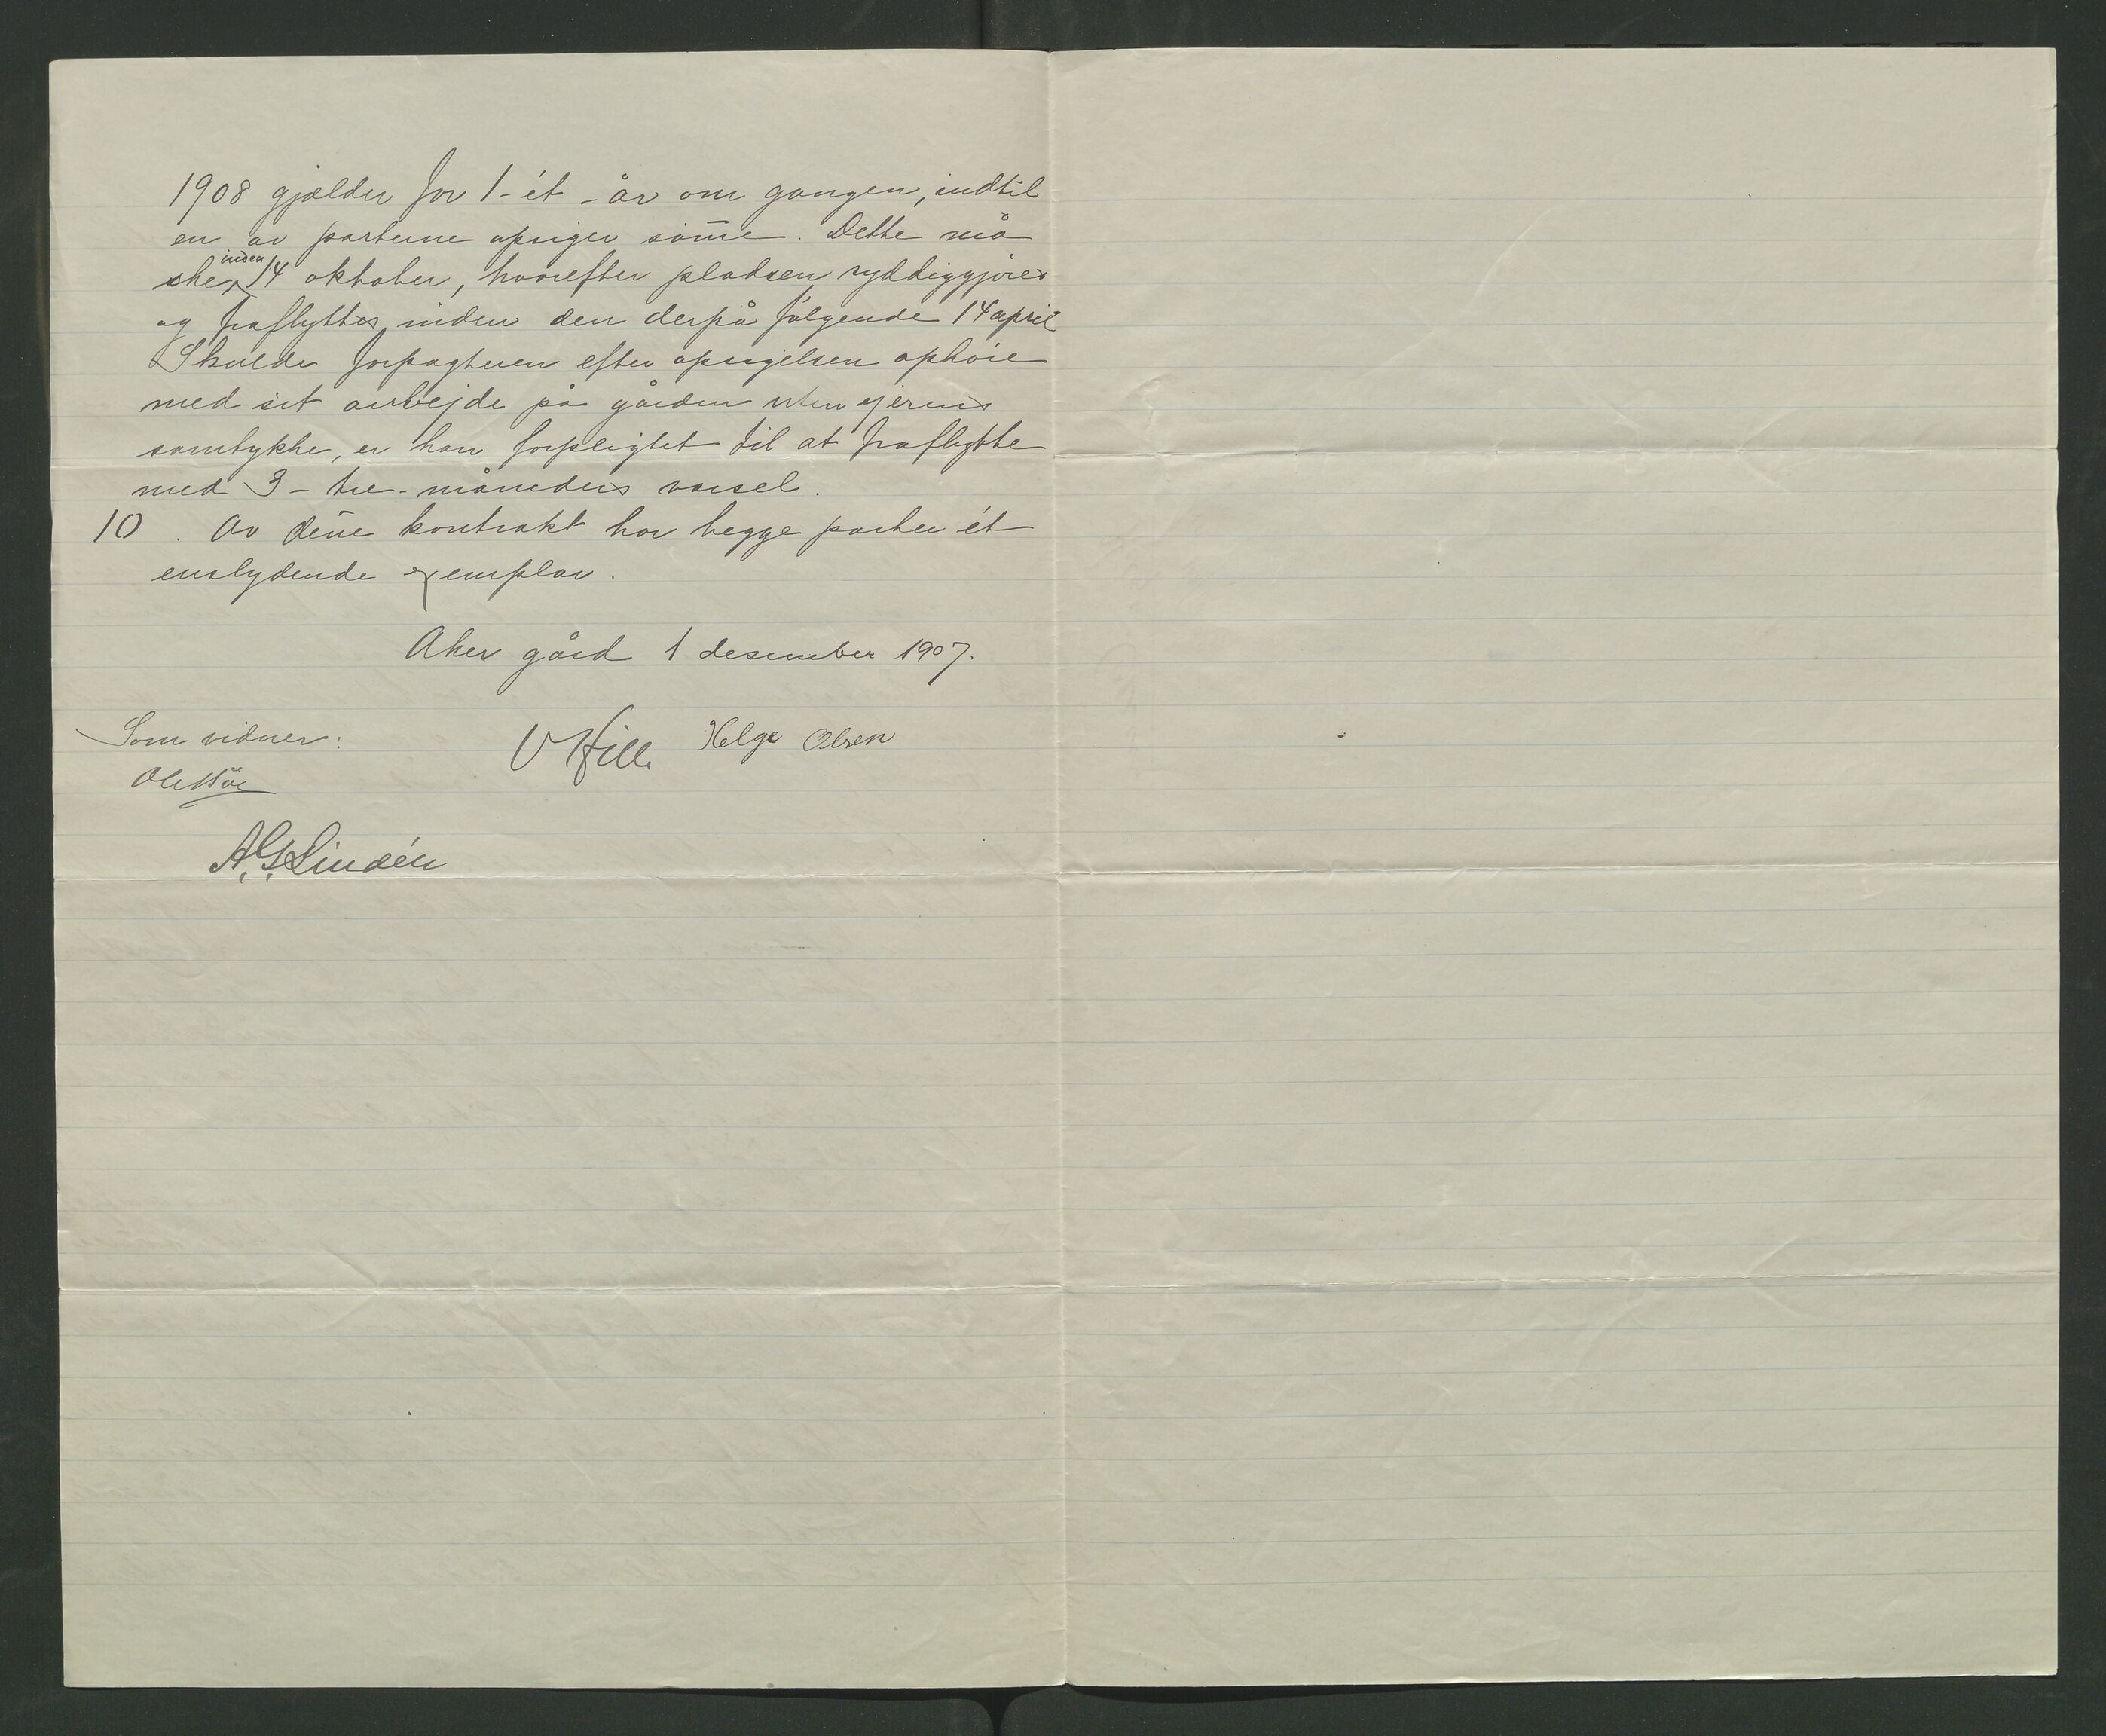 1908 gjælder for 1 - ét - år om gangen, indtil
en av parterne opsiger sam̄e. Dette må
ske inden 14 oktober, hvorefter pladsen ryddiggjøres
og fraflyttes inden den derpå følgende 14 april
Skulde forpagteren efter opsigelsen ophøre
med sit arbejde på gården uten ejerens
samtykke, er han forpligtet til at fraflytte
med 3 - tre - måneders varsel.
10. Av den̄e kontrakt har begge parter ét
enslydende exemplar.
Aker gård 1 desember 1907.
Som vidner:
Helge Olsen
A. G. Lindén